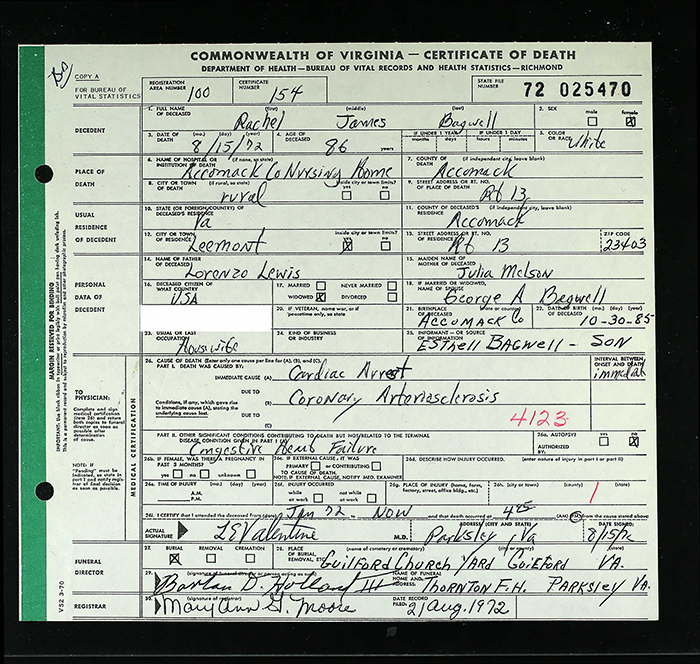 COMMONWEALTH OF VIRGINIA — CERTIFICATE OF DEATH
DEPARTMENT OF HEALTH—BUREAU OF VITAL RECORDS AND HEALTH STATISTICS—RICHMOND
COPY A
FOR BUREAU OF VITAL STATISTICS
REGISTRATION AREA NUMBER 100 CERTIFICATE NUMBER 154 STATE FILE NUMBER 72 025470
DECEDENT
1. FULL NAME OF DECEASED (first) (middle) (last) 2. SEX
Rachel James Bagwell male female
3. DATE OF DEATH (mo.) (day) (year) 4. AGE OF DECEASED IF UNDER 1 YEAR IF UNDER 1 DAY 5. COLOR OR RACE
8/15/72 86 years months days hours minutes White
PLACE OF DEATH
6. NAME OF HOSPITAL OR INSTITUTION OF DEATH (if none, so state) 7. COUNTY OF DEATH (if independent city, leave blank)
Accomack Co Nursing Home Accomack
8. CITY OR TOWN OF DEATH (if rural, so state) inside city or town limits? yes no 9. STREET ADDRESS OR RT. NO. OF PLACE OF DEATH
rural Rt 13
USUAL RESIDENCE OF DECEDENT
10. STATE (OR FOREIGN COUNTRY) OF DECEASED'S RESIDENCE 11. COUNTY OF DECEASED'S RESIDENCE (if independent city, leave blank)
Va Accomack
12. CITY OR TOWN OF RESIDENCE inside city or town limits? yes no 13. STREET ADDRESS OR RT. NO. OF RESIDENCE ZIP CODE
Leemont Rt 13 23403
PERSONAL DATA OF DECEDENT
14. NAME OF FATHER OF DECEASED 15. MAIDEN NAME OF MOTHER OF DECEASED
Lorenzo Lewis Julia Melson
16. DECEASED CITIZEN OF WHAT COUNTRY 17. MARRIED NEVER MARRIED WIDOWED DIVORCED 18. IF MARRIED OR WIDOWED, NAME OF SPOUSE
USA George A Bagwell
20. IF VETERAN, NAME WAR, if peacetime only, so state 21. BIRTHPLACE OF DECEASED 22. DATE OF BIRTH (mo.) (day) (year)
ACCOMACK Co 10-30-85
23. USUAL OR LAST OCCUPATION 24. KIND OF BUSINESS OR INDUSTRY 25. INFORMANT - OR SOURCE OF INFORMATION
Housewife ESTHELL BAGWELL - SON
MARGIN RESERVED FOR BINDING
MEDICAL CERTIFICATION
TO PHYSICIAN:
Complete and sign medical certification (item 26) and return both copies to funeral director as soon as possible after determination of cause.
NOTE: If "Pending" must be indicated, as state in part 1 and notify registrar of final decision as soon as possible.
26. CAUSE OF DEATH (Enter only one cause per line for (A), (B), and (C). INTERVAL BETWEEN ONSET AND DEATH
PART I. DEATH WAS CAUSED BY:
IMMEDIATE CAUSE (A) Cardiac Arrest immediate
Conditions, if any, which gave rise to immediate cause (A), stating the underlying cause last.
DUE TO (B) Coronary Arteriosclerosis
DUE TO (C) 4123
PART II. OTHER SIGNIFICANT CONDITIONS CONTRIBUTING TO DEATH BUT NOT RELATED TO THE TERMINAL DISEASE CONDITION GIVEN IN PART I 26a. AUTOPSY? yes no
Congestive Heart Failure
26b. IF FEMALE, WAS THERE A PREGNANCY IN PAST 3 MONTHS? yes no unknown
PRIMARY or CONTRIBUTING TO CAUSE OF DEATH. NOTE: IF EXTERNAL CAUSE, NOTIFY MED. EXAMINER
26d. DESCRIBE HOW INJURY OCCURRED. (enter nature of injury in part I or part II)
26e. TIME OF INJURY (mo.) (day) (year) A.M. P.M. 26f. INJURY OCCURRED while at work not while at work 26g. PLACE OF INJURY (home, farm, factory, street, office bldg., etc.) 26h. (city or town) (county) (state)
26i. I certify that I attended the deceased from Jan 72 to Now and that death occurred at 405 (AM) (PM) from the cause stated
ACTUAL SIGNATURE L E Valentine M.D. ADDRESS (CITY AND STATE) Parksley, Va DATE SIGNED 8/15/72
FUNERAL DIRECTOR
27. BURIAL REMOVAL CREMATION 28. PLACE OF BURIAL, REMOVAL, ETC. (name of cemetery or crematory) (city or county) (state)
GUILFORD CHURCH YARD GUILFORD VA.
29. (signature of funeral director or person acting as such) NAME OF FUNERAL HOME AND ADDRESS:
D. Holland III THORNTON F.H. PARKSLEY VA.
REGISTRAR
30. (signature of registrar) DATE RECORD FILED:
Mary Ann G. Moore 21 Aug. 1972
VS2 3-70